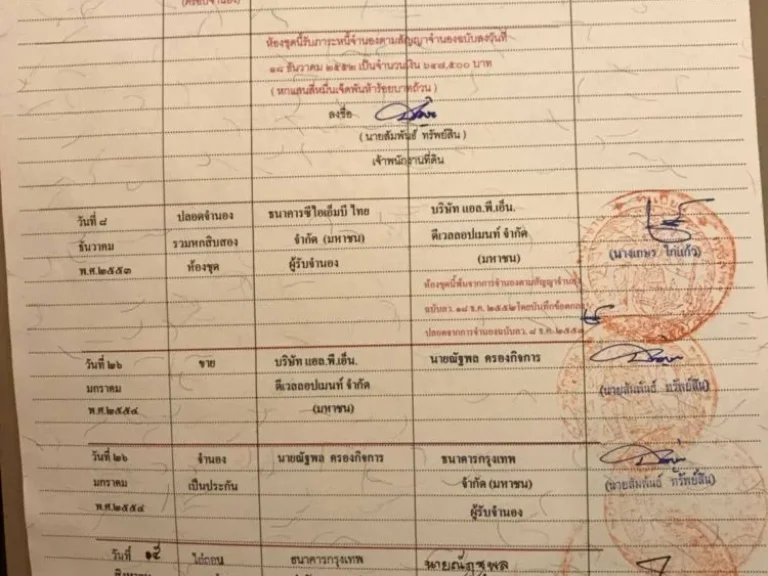 (ครอบจำนอง)
ห้องชุดนี้รับภาระหนี้จำนองตามสัญญาจำนองฉบับลงวันที่
๑๘ ธันวาคม ๒๕๕๒ เป็นจำนวนเงิน ๖๔๘,๕๐๐ บาท
( หกแสนสี่หมื่นเจ็ดพันห้าร้อยบาทถ้วน )
ลงชื่อ
( นายสัมพันธ์ ทรัพย์สิน )
เจ้าพนักงานที่ดิน
วันที่ ๘ ปลอดจำนอง ธนาคารซีไอเอ็มบี ไทย บริษัท แอล.พี.เอ็น.
ธันวาคม รวมหกสิบสอง จำกัด (มหาชน) ดีเวลลอปเมนท์ จำกัด
พ.ศ.๒๕๕๓ ห้องชุด ผู้รับจำนอง (มหาชน) (นางเกษร ไก่แก้ว)
ห้องชุดนี้พ้นจากการจำนองตามสัญญาจำนอง
ฉบับลว. ๑๘ ธ.ค. ๒๕๕๒ โดยบันทึกข้อตกลง
ปลอดจากการจำนองฉบับลว. ๘ ธ.ค. ๒๕๕๓
วันที่ ๒๖ ขาย บริษัท แอล.พี.เอ็น. นายณัฐพล ครองกิจการ
มกราคม ดีเวลลอปเมนท์ จำกัด (นายสัมพันธ์ ทรัพย์สิน)
พ.ศ.๒๕๕๔ (มหาชน)
วันที่ ๒๖ จำนอง นายณัฐพล ครองกิจการ ธนาคารกรุงเทพ
มกราคม เป็นประกัน จำกัด (มหาชน) (นายสัมพันธ์ ทรัพย์สิน)
พ.ศ.๒๕๕๔ ผู้รับจำนอง
วันที่ ๑๕ ไถ่ถอน ธนาคารกรุงเทพ นายณัฐพล